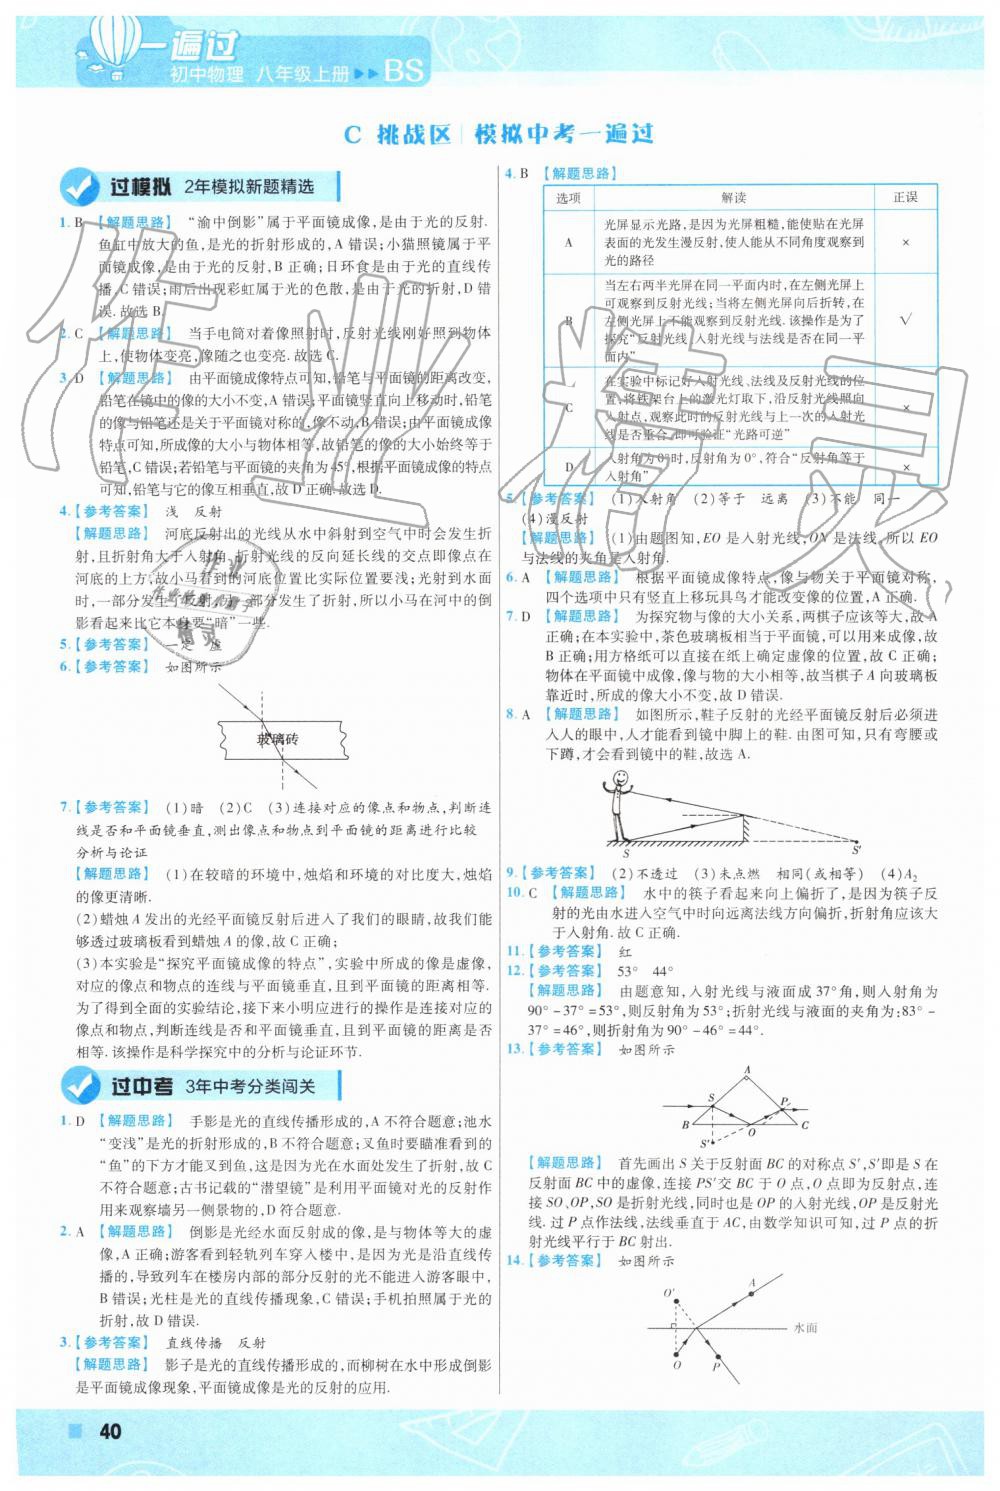 一遍过
初中物理 八年级上册 ▶▶ BS
C 挑战区 模拟中考一遍过
过模拟 2年模拟新题精选
1. B 【解题思路】 “渝中倒影”属于平面镜成像,是由于光的反射.
鱼缸中放大的鱼,是光的折射形成的,A 错误;小猫照镜属于平
面镜成像,是由于光的反射,B 正确;日环食是由于光的直线传
播,C 错误;雨后出现彩虹属于光的色散,是由于光的折射,D 错
误.故选 B.
2. C 【解题思路】 当手电筒对着像照射时,反射光线刚好照到物体
上,使物体变亮,像随之也变亮.故选 C.
3. D 【解题思路】 由平面镜成像特点可知,铅笔与平面镜的距离改变,
铅笔在镜中的像的大小不变,A 错误;平面镜竖直向上移动时,铅笔
的像与铅笔还是关于平面镜对称的,像不动,B 错误;由平面镜成像
特点可知,所成像的大小与物体相等,故铅笔的像的大小始终等于
铅笔,C 错误;若铅笔与平面镜的夹角为45°,根据平面镜成像的特点
可知,铅笔与它的像互相垂直,故 D 正确.故选 D.
4.【参考答案】 浅 反射
【解题思路】 河底反射出的光线从水中斜射到空气中时会发生折
射,且折射角大于入射角,折射光线的反向延长线的交点即像点在
河底的上方,故小马看到的河底位置比实际位置要浅;光射到水面
时,一部分发生了反射,一部分发生了折射,所以小马在河中的倒
影看起来比它本身要“暗”一些.
5.【参考答案】 一定 虚
6.【参考答案】 如图所示
玻璃砖
7.【参考答案】 (1)暗 (2)C (3)连接对应的像点和物点,判断连
线是否和平面镜垂直,测出像点和物点到平面镜的距离进行比较
分析与论证
【解题思路】 (1)在较暗的环境中,烛焰和环境的对比度大,烛焰
的像更清晰.
(2)蜡烛 A 发出的光经平面镜反射后进入了我们的眼睛,故我们能
够透过玻璃板看到蜡烛 A 的像,故 C 正确;
(3)本实验是“探究平面镜成像的特点”,实验中所成的像是虚像,
对应的像点和物点的连线与平面镜垂直,且到平面镜的距离相等.
为了得到全面的实验结论,接下来小明应进行的操作是连接对应的
像点和物点,判断连线是否和平面镜垂直,且到平面镜的距离是否
相等.该操作是科学探究中的分析与论证环节.
过中考 3年中考分类闯关
1. D 【解题思路】 手影是光的直线传播形成的,A 不符合题意;池水
“变浅”是光的折射形成的,B 不符合题意;叉鱼时要瞄准看到的
“鱼”的下方才能叉到鱼,这是因为光在水面处发生了折射,故 C
不符合题意;古书记载的“潜望镜”是利用平面镜对光的反射作
用来观察墙另一侧景物的,D 符合题意.
2. A 【解题思路】 倒影是光经水面反射成的像,是与物体等大的虚
像,A 正确;游客看到轻轨列车穿入楼中,是因为光是沿直线传
播的,导致列车在楼房内部的部分反射的光不能进入游客眼中,
B 错误;光柱是光的直线传播现象,C 错误;手机拍照属于光的
折射,故 D 错误.
3.【参考答案】 直线传播 反射
【解题思路】 影子是光的直线传播形成的,而柳树在水中形成倒影
是平面镜成像现象,平面镜成像是光的反射的应用.
4. B 【解题思路】
选项 解读 正误
A 光屏显示光路,是因为光屏粗糙,能使贴在光屏
表面的光发生漫反射,使人能从不同角度观察到
光的路径 ×
B 当左右两半光屏在同一平面内时,在左侧光屏上
可观察到反射光线;当将左侧光屏向后折转,在
左侧光屏上不能观察到反射光线.该操作是为了
探究“反射光线、入射光线与法线是否在同一平
面内” √
C 在实验中标记好入射光线、法线及反射光线的位
置,将铁架台上的激光灯取下,沿反射光线照向
入射点,观察此时的反射光线与上一次的入射光
线是否重合,即可验证“光路可逆” ×
D 入射角为0°时,反射角为 0°,符合“反射角等于
入射角” ×
5.【参考答案】 (1)入射角 (2)等于 远离 (3)不能 同一
(4)漫反射
【解题思路】 (1)由题图知,EO 是入射光线,ON 是法线,所以 EO
与法线的夹角是入射角.
6. A 【解题思路】 根据平面镜成像特点,像与物关于平面镜对称,
四个选项中只有竖直上移玩具鸟才能改变像的位置,A 正确.
7. D 【解题思路】 为探究物与像的大小关系,两棋子应该等大,故 A
正确;在本实验中,茶色玻璃板相当于平面镜,可以用来成像,故
B 正确;用方格纸可以直接在纸上确定虚像的位置,故 C 正确;
物体在平面镜中成像,像与物的大小相等,故当棋子 A 向玻璃板
靠近时,所成的像大小不变,故 D 错误.
8. A 【解题思路】 如图所示,鞋子反射的光经平面镜反射后必须进
入人的眼中,人才能看到镜中脚上的鞋.由图可知,只有弯腰或
下蹲,才会看到镜中的鞋,故选 A.
S S′
9.【参考答案】 (2)不透过 (3)未点燃 相同(或相等) (4)A₂
10. C 【解题思路】 水中的筷子看起来向上偏折了,是因为筷子反
射的光由水进入空气中时向远离法线方向偏折,折射角应该大
于入射角.故 C 正确.
11.【参考答案】 红
12.【参考答案】 53° 44°
【解题思路】 由题意知,入射光线与液面成 37°角,则入射角为
90° - 37° = 53°,则反射角为 53°;折射光线与液面的夹角为:83° -
37° = 46°,则折射角为 90° - 46° = 44°.
13.【参考答案】 如图所示
A
S P
B O C
S′
【解题思路】 首先画出 S 关于反射面 BC 的对称点 S′,S′即是 S 在
反射面 BC 中的虚像,连接 PS′交 BC 于 O 点,O 点即为反射点,连
接 SO、OP,SO 是折射光线,同时也是 OP 的入射光线,OP 是反射光
线.过 P 点作法线,法线垂直于 AC,由数学知识可知,过 P 点的折
射光线平行于 BC 射出.
14.【参考答案】 如图所示
O′ A
水面
O P
40
作业精灵
作业
精灵